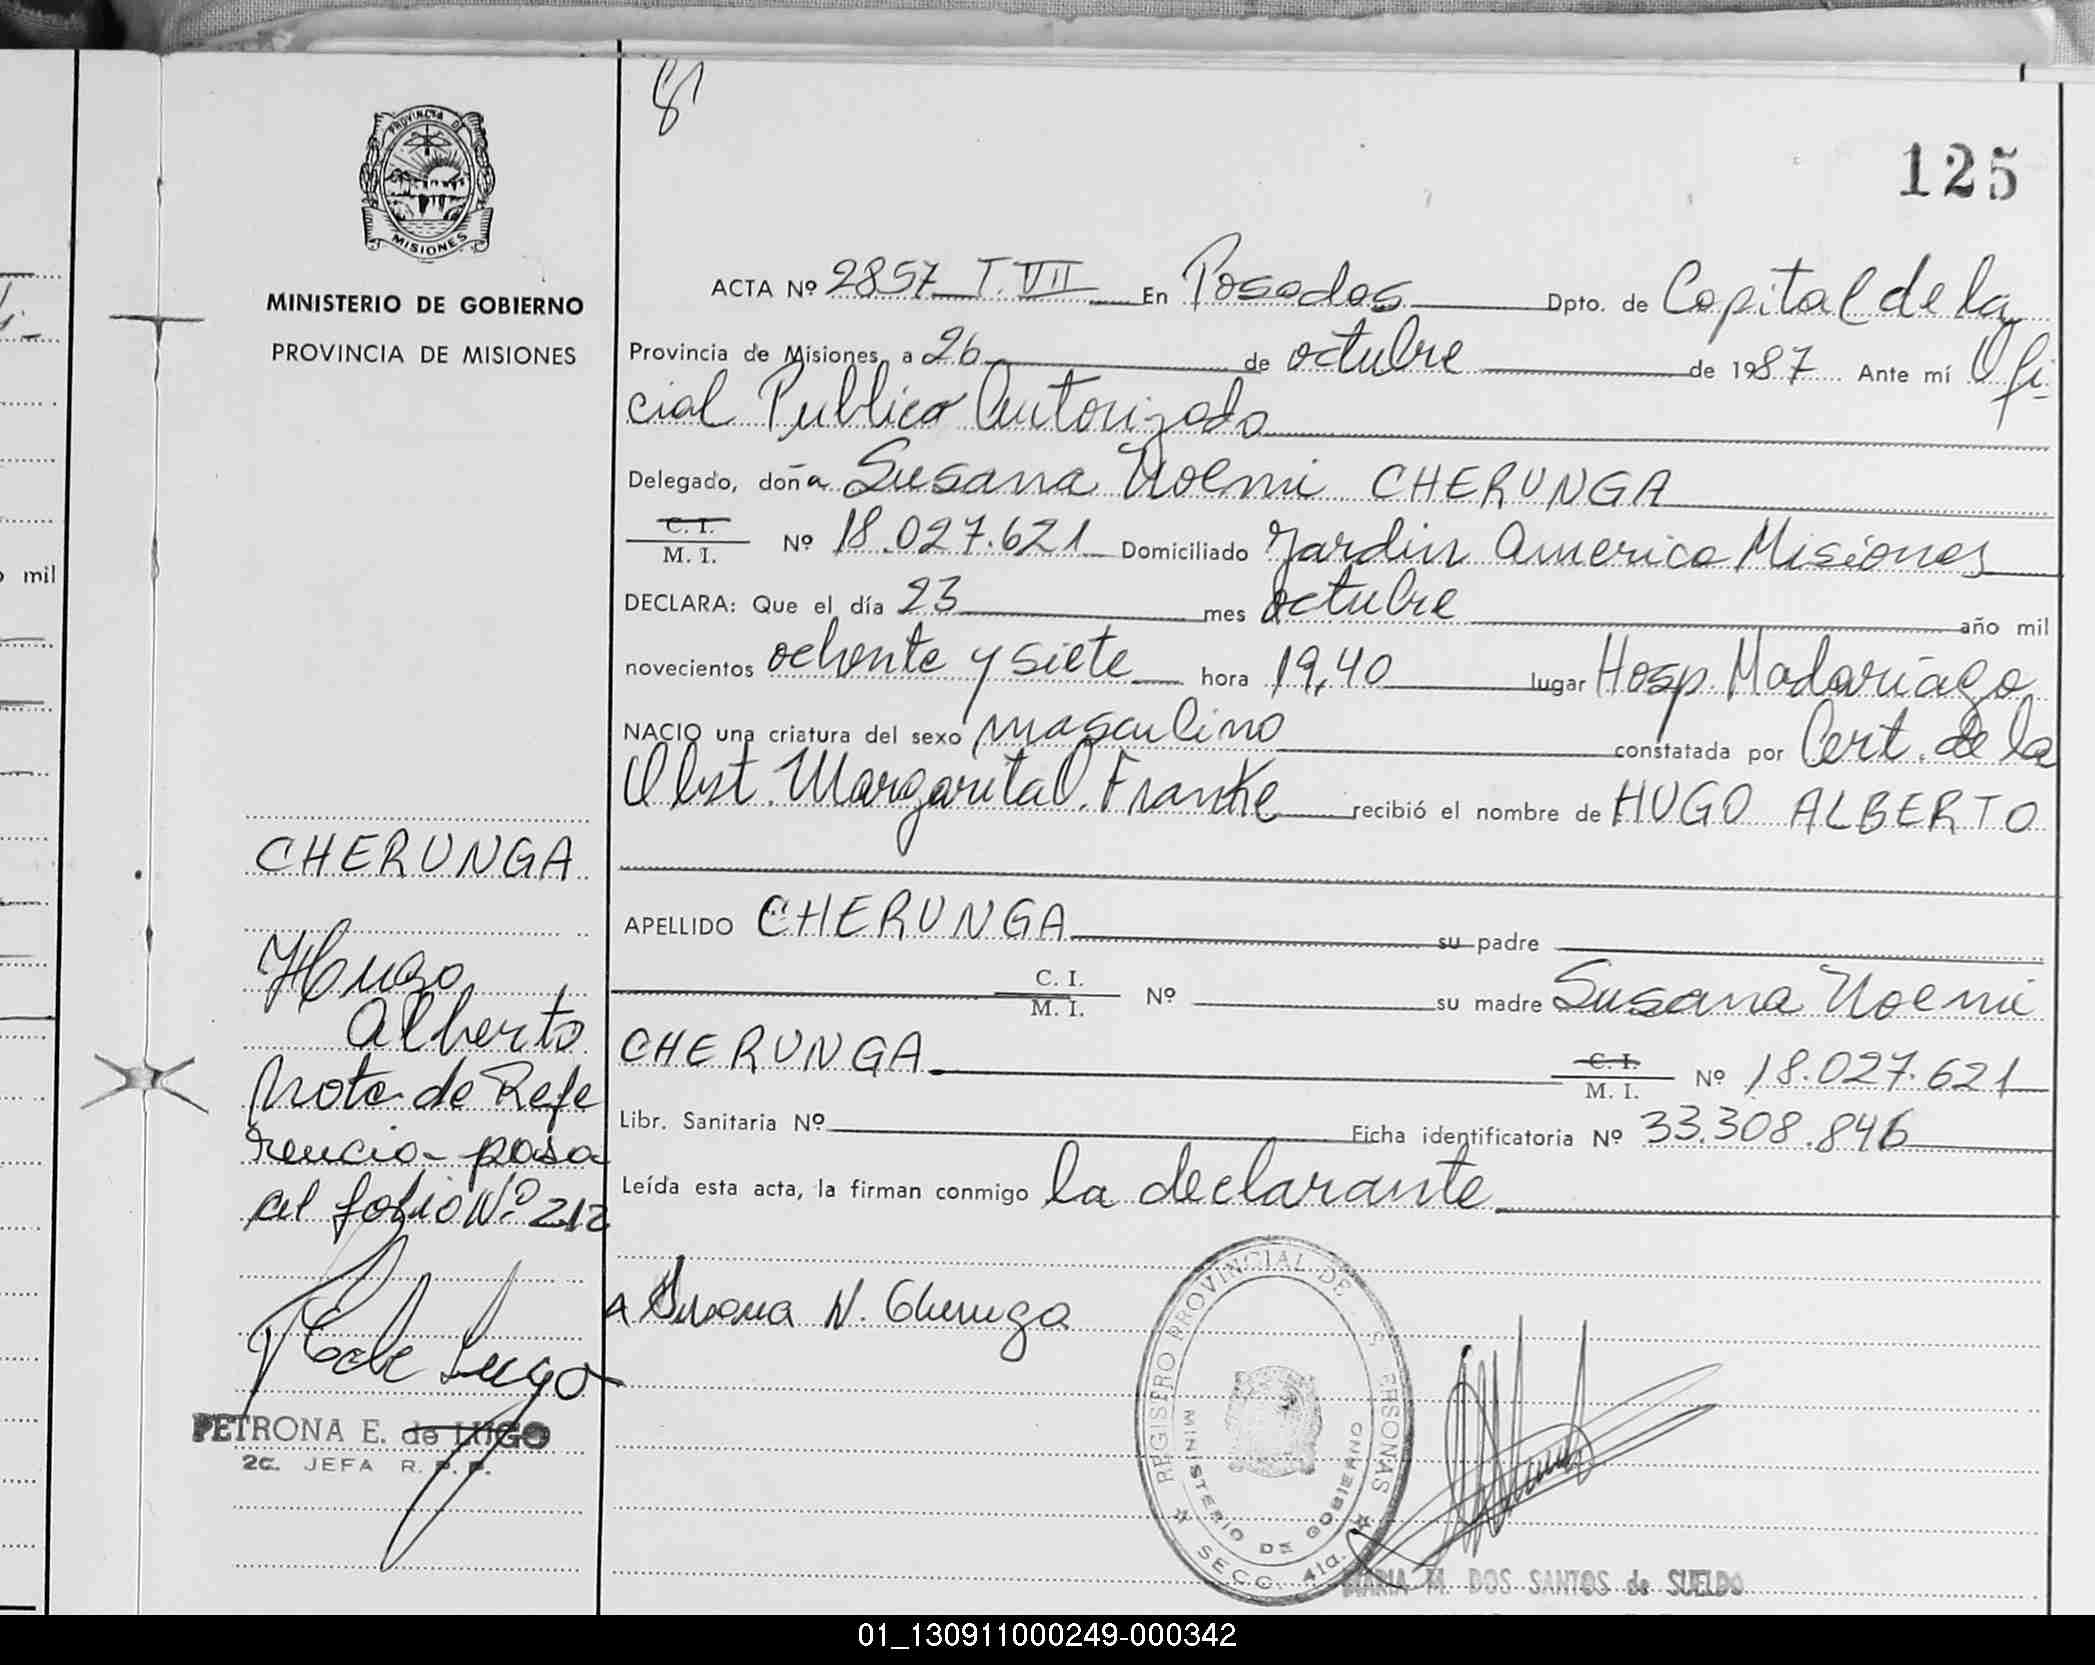 125
PROVINCIA DE
MISIONES
MINISTERIO DE GOBIERNO
PROVINCIA DE MISIONES
ACTA Nº 2857 T. VII En Posadas Dpto. de Capital de la
Provincia de Misiones, a 26 de octubre de 1987 Ante mí Ofi-
cial Publico Autorizado
Delegado, doña Susana Noemi CHERUNGA
C. I.
M. I. Nº 18.027.621 Domiciliado Jardin America Misiones
DECLARA: Que el día 23 mes octubre año mil
novecientos ochenta y siete hora 19,40 lugar Hosp. Madariaga
NACIO una criatura del sexo masculino constatada por Cert. de la
Obst. Margarita O. Franke recibió el nombre de HUGO ALBERTO
APELLIDO CHERUNGA su padre
C. I.
M. I. Nº su madre Susana Noemi
CHERUNGA C. I.
M. I. Nº 18.027.621
Libr. Sanitaria Nº Ficha identificatoria Nº 33.308.846
Leída esta acta, la firman conmigo la declarante
Susana N. Cherunga
CHERUNGA
Hugo
Alberto
Nota de Refe
rencia- pasa
al folio Nº 212
PETRONA E. de LUGO
2c. JEFA R. P. P.
REGISTRO PROVINCIAL DE PERSONAS
MINISTERIO DE GOBIERNO
SECC. 4ta.
MARIA M. DOS SANTOS de SUELDO
o mil
01_130911000249-000342